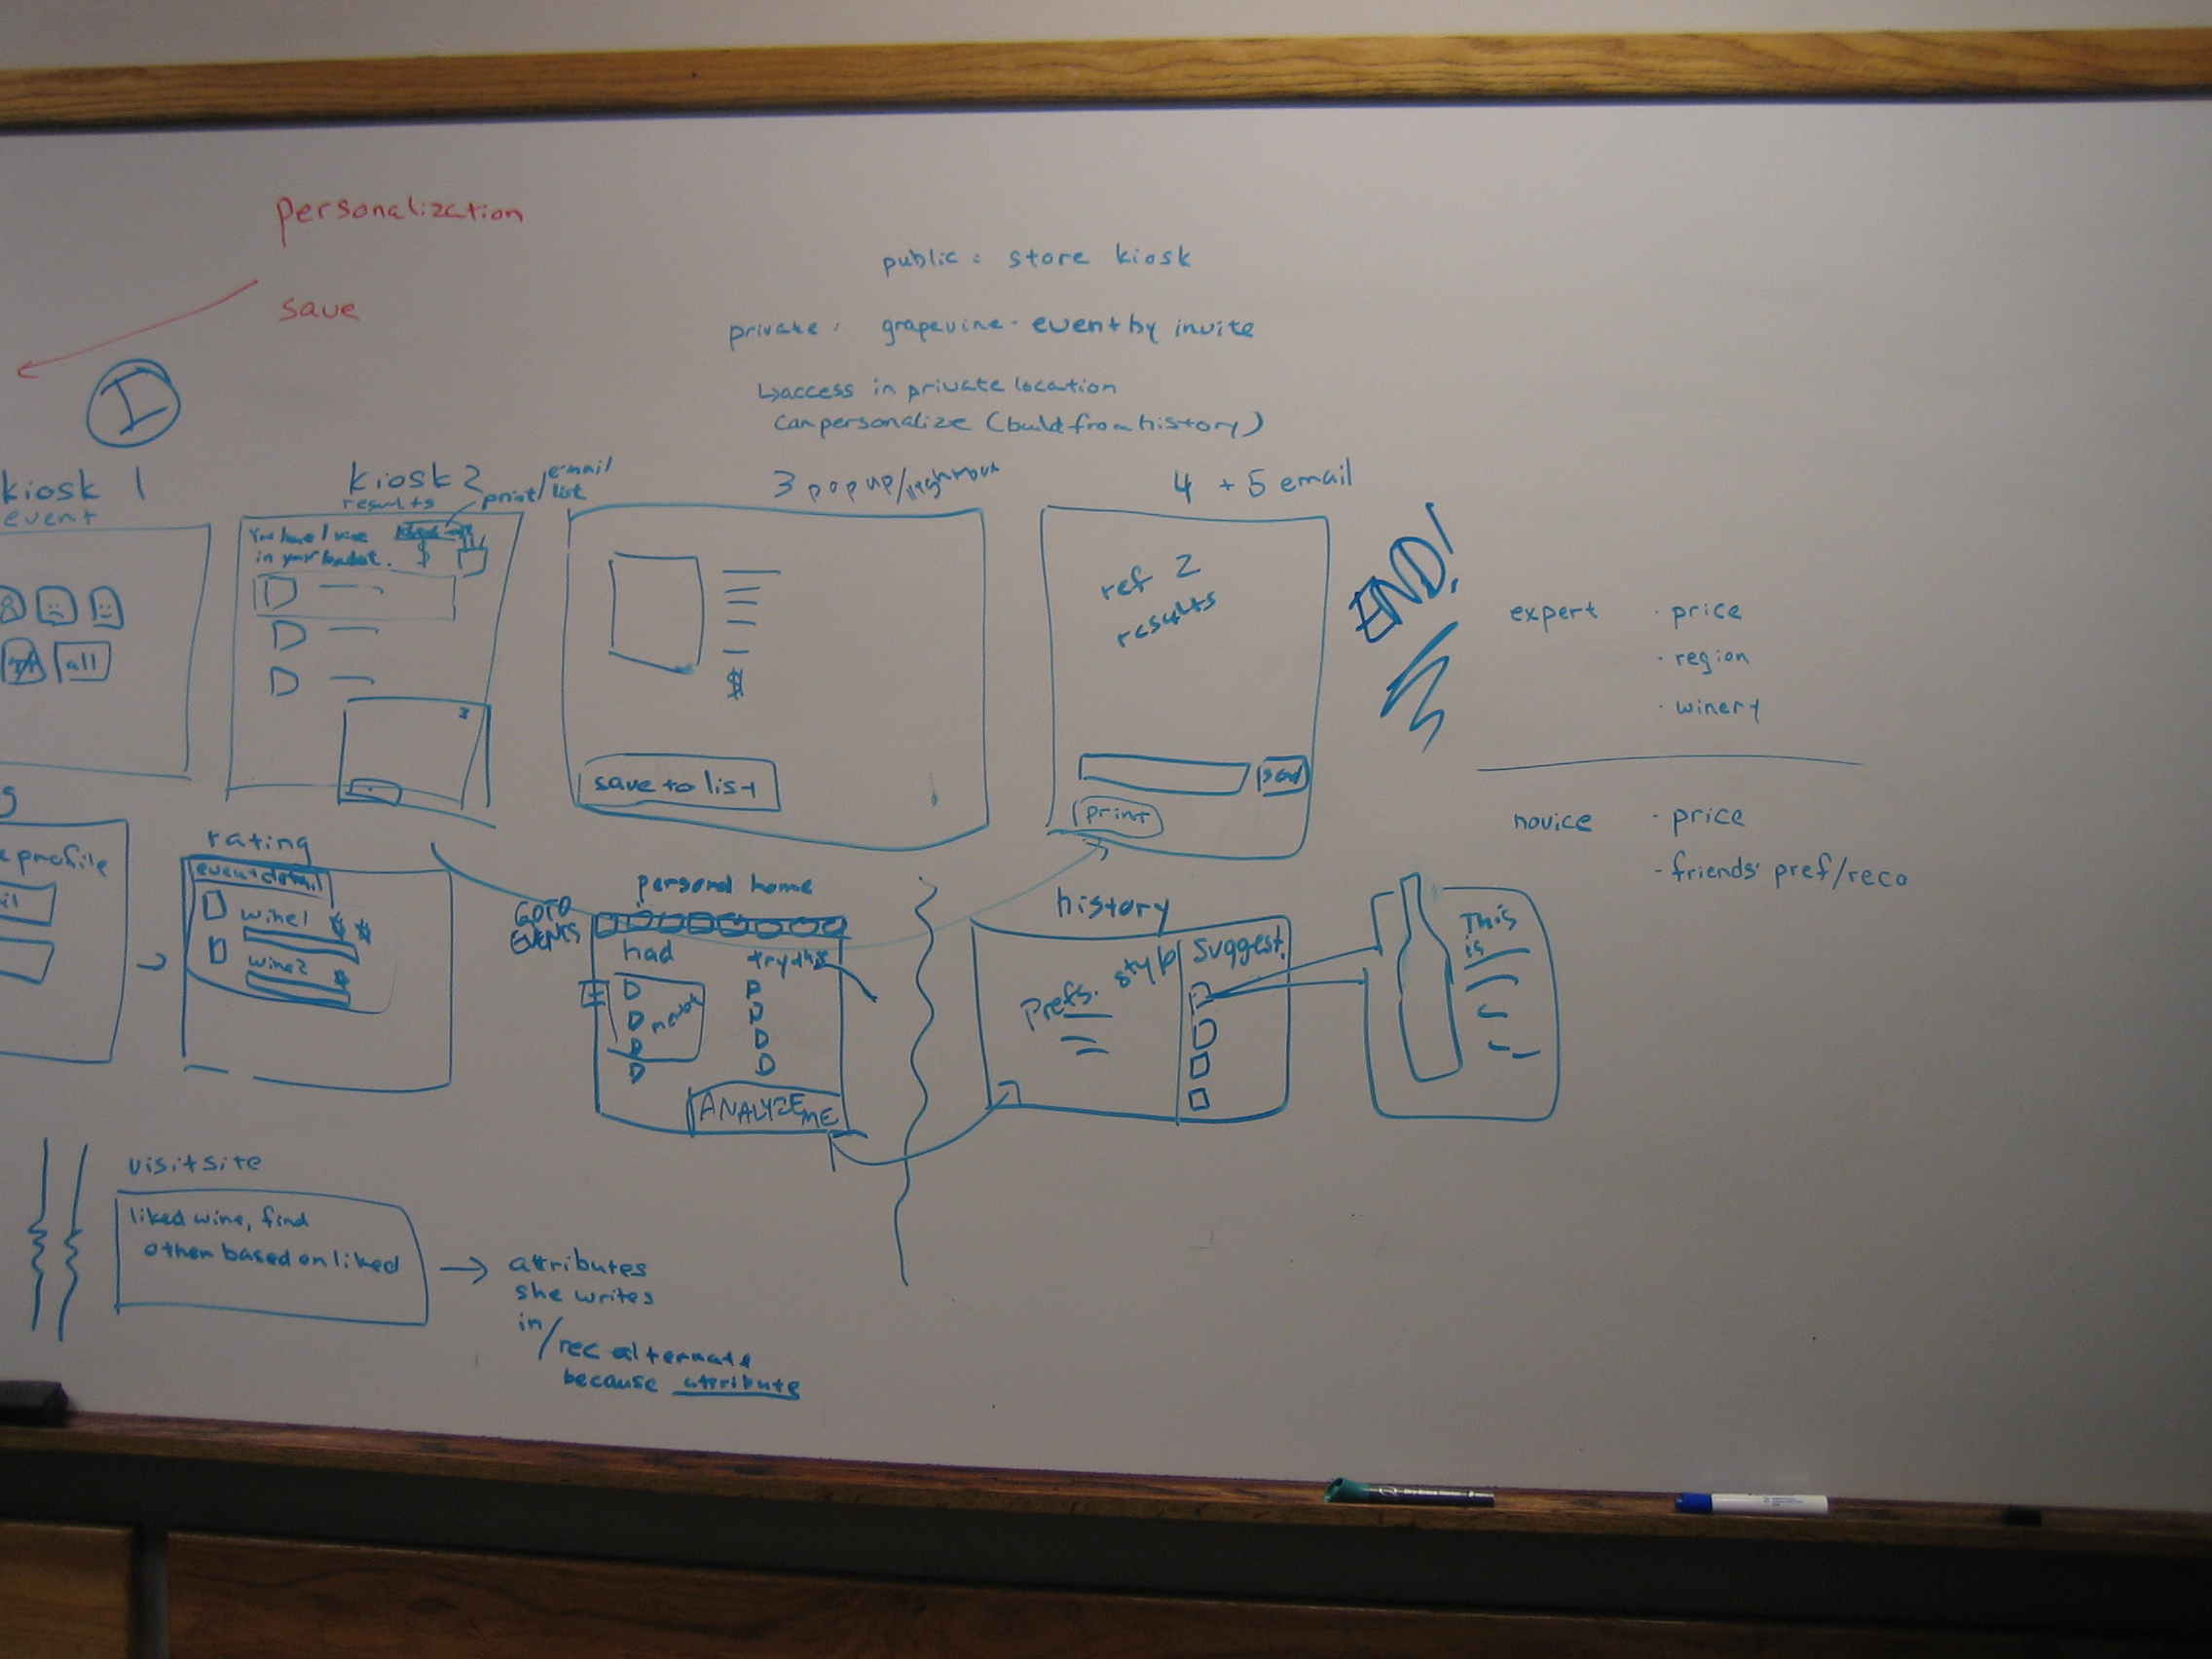 personalization
save
public: store kiosk
private: grapevine - event by invite
↳access in private location
can personalize (build from history)
I
kiosk 1
event
all
kiosk 2
results
print/email
list
You have 1 wine
in your basket.
$
3 popup/
$
save to list
4 + 5 email
ref 2
results
send
print
END!
expert · price
· region
· winery
novice · price
- friends' pref/reco
profile
rating
event detail
wine1
wine2
personal home
GOTO
EVENTS
had
try this
ANALYZE ME
history
Prefs.
Suggest.
This
is
visit site
liked wine, find
other based on liked
→ attributes
she writes
in
/rec alternate
because attribute